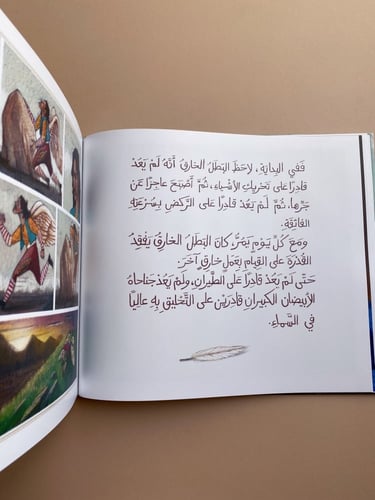 فَفِي البِدايَةِ، لاحَظَ البَطَلُ الخارِقُ أَنَّهُ لَمْ يَعُدْ
قادِرًا عَلى تَحْريكِ الأَشْياءِ، ثُمَّ أَصْبَحَ عاجِزًا عَنْ
جَرِّها، ثُمَّ لَمْ يَعُدْ قادِرًا عَلى الرَّكْضِ بِسُرْعَتِهِ
الفائِقَةِ.
وَمَعَ كُلِّ يَوْمٍ يَمُرُّ، كانَ البَطَلُ الخارِقُ يَفْقِدُ
القُدْرَةَ عَلى القِيامِ بِعَمَلٍ خارِقٍ آخَرَ.
حَتّى لَمْ يَعُدْ قادِرًا عَلى الطَّيَرانِ، وَلَمْ يَعُدْ جَناحاهُ
الأَبْيَضانِ الكَبيرانِ قادِرَيْنِ عَلى التَّحْليقِ بِهِ عالِيًا
في السَّماءِ.